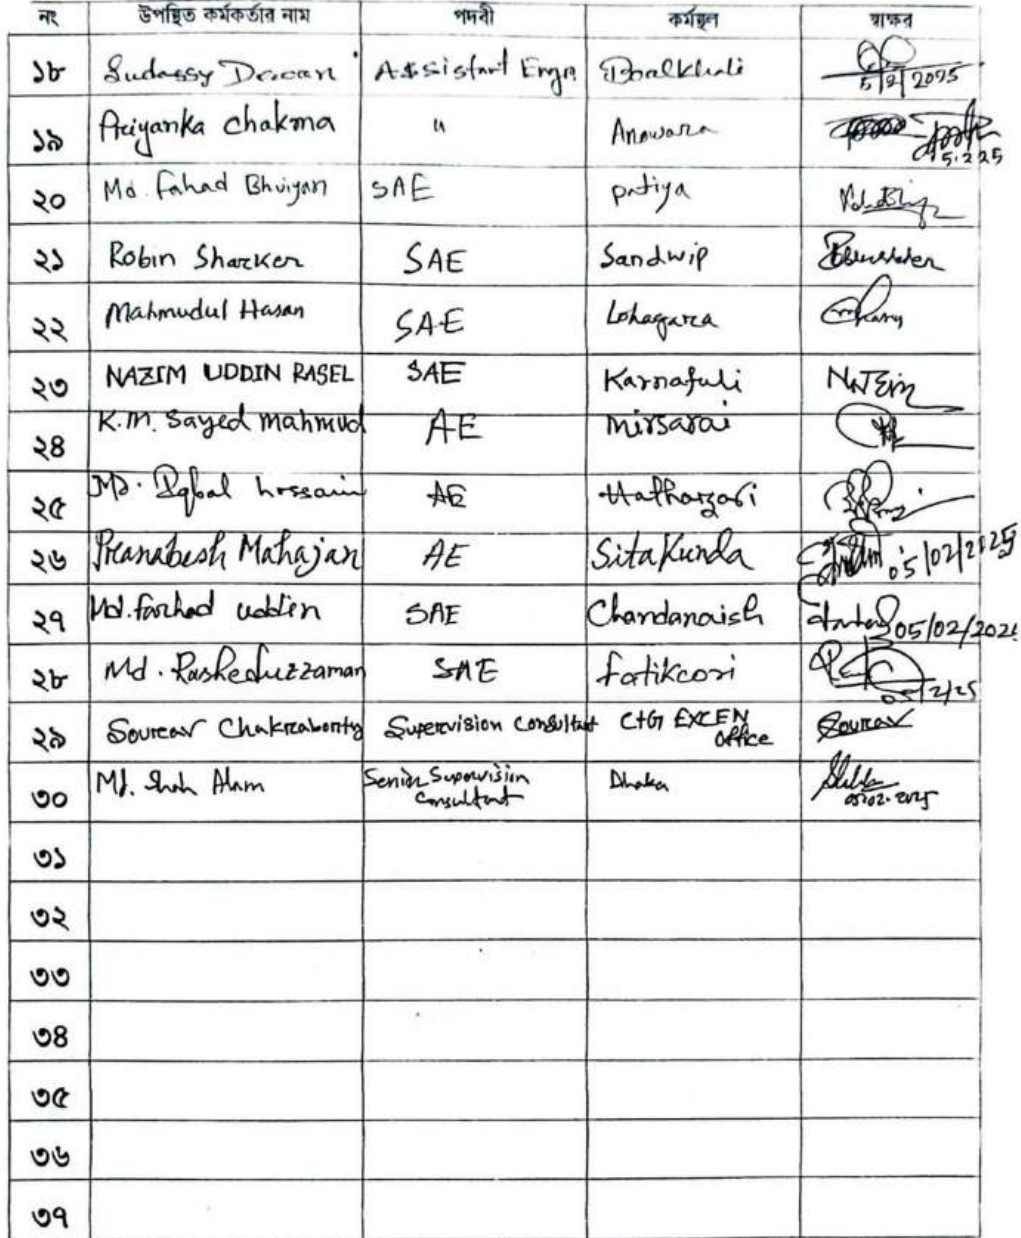 নং উপস্থিত কর্মকর্তার নাম পদবী কর্মস্থল স্বাক্ষর
১৮ Sudassy Dewan Assistant Engr. Boalkhali 5/2/2025
১৯ Priyanka Chakma " Anowara 5.2.25
২০ Md. Fahad Bhuiyan SAE patiya
২১ Robin Sharker SAE Sandwip
২২ Mahmudul Hasan SAE Lohagara
২৩ NAZIM UDDIN RASEL SAE Karnafuli
২৪ K.M. Sayed mahmud AE mirsarai
২৫ Md. Iqbal hossain AE Hathazari
২৬ Pranabesh Mahajan AE Sitakunda 05/02/2025
২৭ Md. farhad uddin SAE Chandanaish 05/02/202
২৮ Md. Rasheduzzaman SAE fatikcori 05/2/25
২৯ Sourav Chakraborty Supervision Consultant CtG EXCEN Office Sourav
৩০ Md. Shah Alam Senior Supervision Consultant Dhaka 05.02.2025
৩১
৩২
৩৩
৩৪
৩৫
৩৬
৩৭